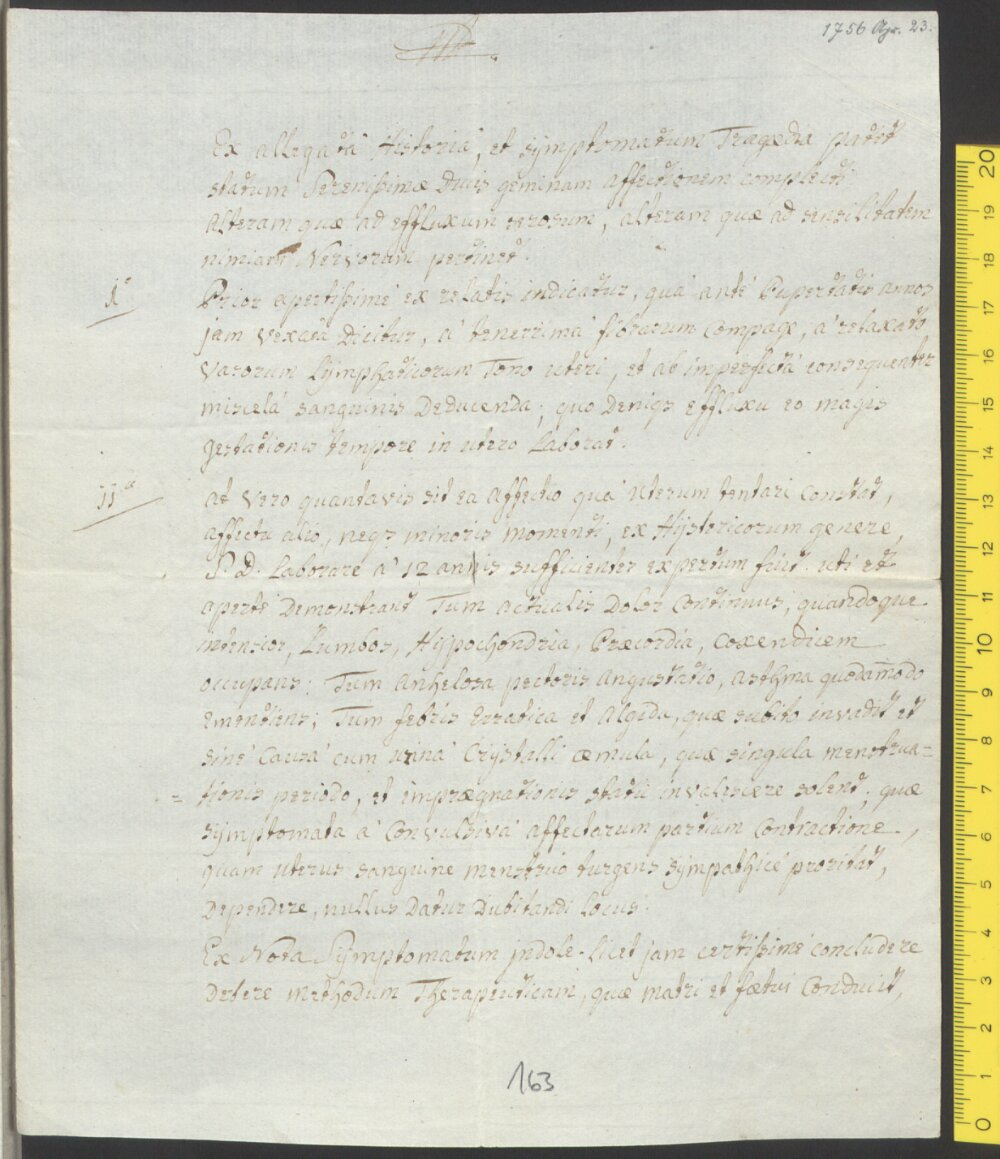 1756 Apr. 23.
Ex allegatâ Historiâ, et symptomatum Tragedia patet
statum Serenissimæ Ducis geminam affectionem complecti
alteram quæ ad effluxum serosum, alteram quæ ad sensilitatem
nimiam Nervorum pertinet.
1º
Prior apertissimè ex relatis indicatur, quâ antè Pupertatis annos
jam vexata dicitur, à tenerrimâ fibrarum compage, à relaxato
vasorum Lymphaticorum Tono uteri, et ab imperfectâ consequenter
miscelâ sanguinis Deducenda; quo Deniqs effluxu eo magis
gestationis tempore in utero Laborat.
IIª
at vero quantavis sit ea affectio quâ uterum tentari constat,
affectu alio, neqs minoris momenti, ex Hystericorum genere,
S. D. Laborare à 12 annis sufficienter expertum fuit. uti et
apertè Demonstrant Tum actualis Dolor continuus, quandoque
intensior, Lumbos, Hypochondria, Præcordia, coxendicem
occupans; Tum anhelosa pectoris angustatio, asthma quodam̄odo
ementiens; Tum febris erratica et algida, quæ subito invadit et
sinè causâ cum urinâ Crystalli æmula, quæ singula menstrua=
=tionis periodo, et imprægnationis statu invalescere solent; quæ
symptomata à convulsivâ affectarum partium contractione,
quam uterus sanguine menstruo turgens sympathicè proritat,
Dependere, nullus Datur Dubitandi Locus.
Ex Nota Symptomatum indole licet jam certissimè concludere
Detere methodum Therapeuticam, quæ matri et fœtui conducit,
163